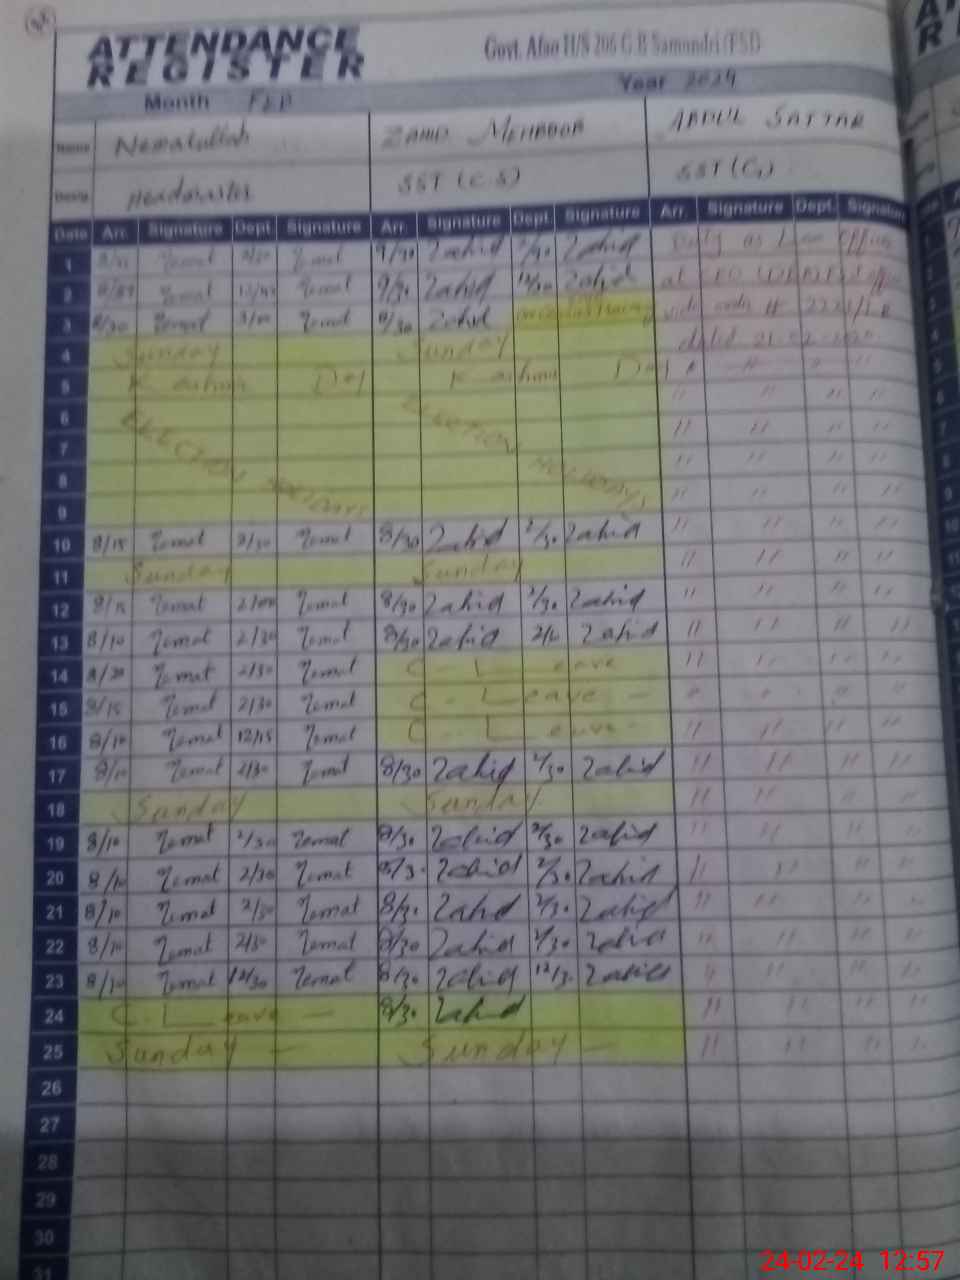 ATTENDANCE REGISTER
Govt. H/S 206 G.B Samundri (FSD)
Month FEB Year 2024
Name Nematullah ZAHID MEHBOOB ABDUL SATTAR
Desig. Headmaster SST (C.S) SST (G)
Date Arr. Signature Dept. Signature Arr. Signature Dept. Signature Arr. Signature Dept. Signature
1 Zemat Zemat 9/30 Zahid 2/30 Zahid Duty as
2 Zemat Zemat 9/30 Zahid 12/30 Zahid at CEO
3 8/20 Zemat Zemat 8/30 Zahid
4 Sunday Sunday dated
5 Kashmir Day Kashmir Day " " " "
6 ELECTION HOLIDAYS ELECTION HOLIDAYS " " " "
7 " " " "
8 " " " "
9 " " " "
10 8/15 Zemat 2/30 Zemat 8/30 Zahid 2/30 Zahid " " " "
11 Sunday Sunday " " " "
12 8/15 Zemat 2/00 Zemat 8/30 Zahid 2/30 Zahid " " " "
13 8/10 Zemat 2/30 Zemat 8/30 Zahid Zahid " " " "
14 8/20 Zemat 2/30 Zemat C - Leave " " " "
15 8/15 Zemat 2/30 Zemat C - Leave - " " " "
16 8/10 Zemat 12/15 Zemat C - Leave - " " " "
17 8/10 Zemat 2/30 Zemat 8/30 Zahid 2/30 Zahid " " " "
18 Sunday Sunday " " " "
19 8/10 Zemat 2/30 Zemat 8/30 Zahid 2/30 Zahid " " " "
20 8/10 Zemat 2/30 Zemat 8/30 Zahid 2/30 Zahid " " " "
21 8/10 Zemat 2/30 Zemat 8/30 Zahid 2/30 Zahid " " " "
22 8/10 Zemat 2/30 Zemat 8/30 Zahid 2/30 Zahid " " " "
23 8/10 Zemat 12/30 Zemat 8/30 Zahid 12/30 Zahid " " " "
24 C - Leave - 8/30 Zahid " " " "
25 Sunday - Sunday - " " " "
26
27
28
29
30
31
24-02-24 12:57